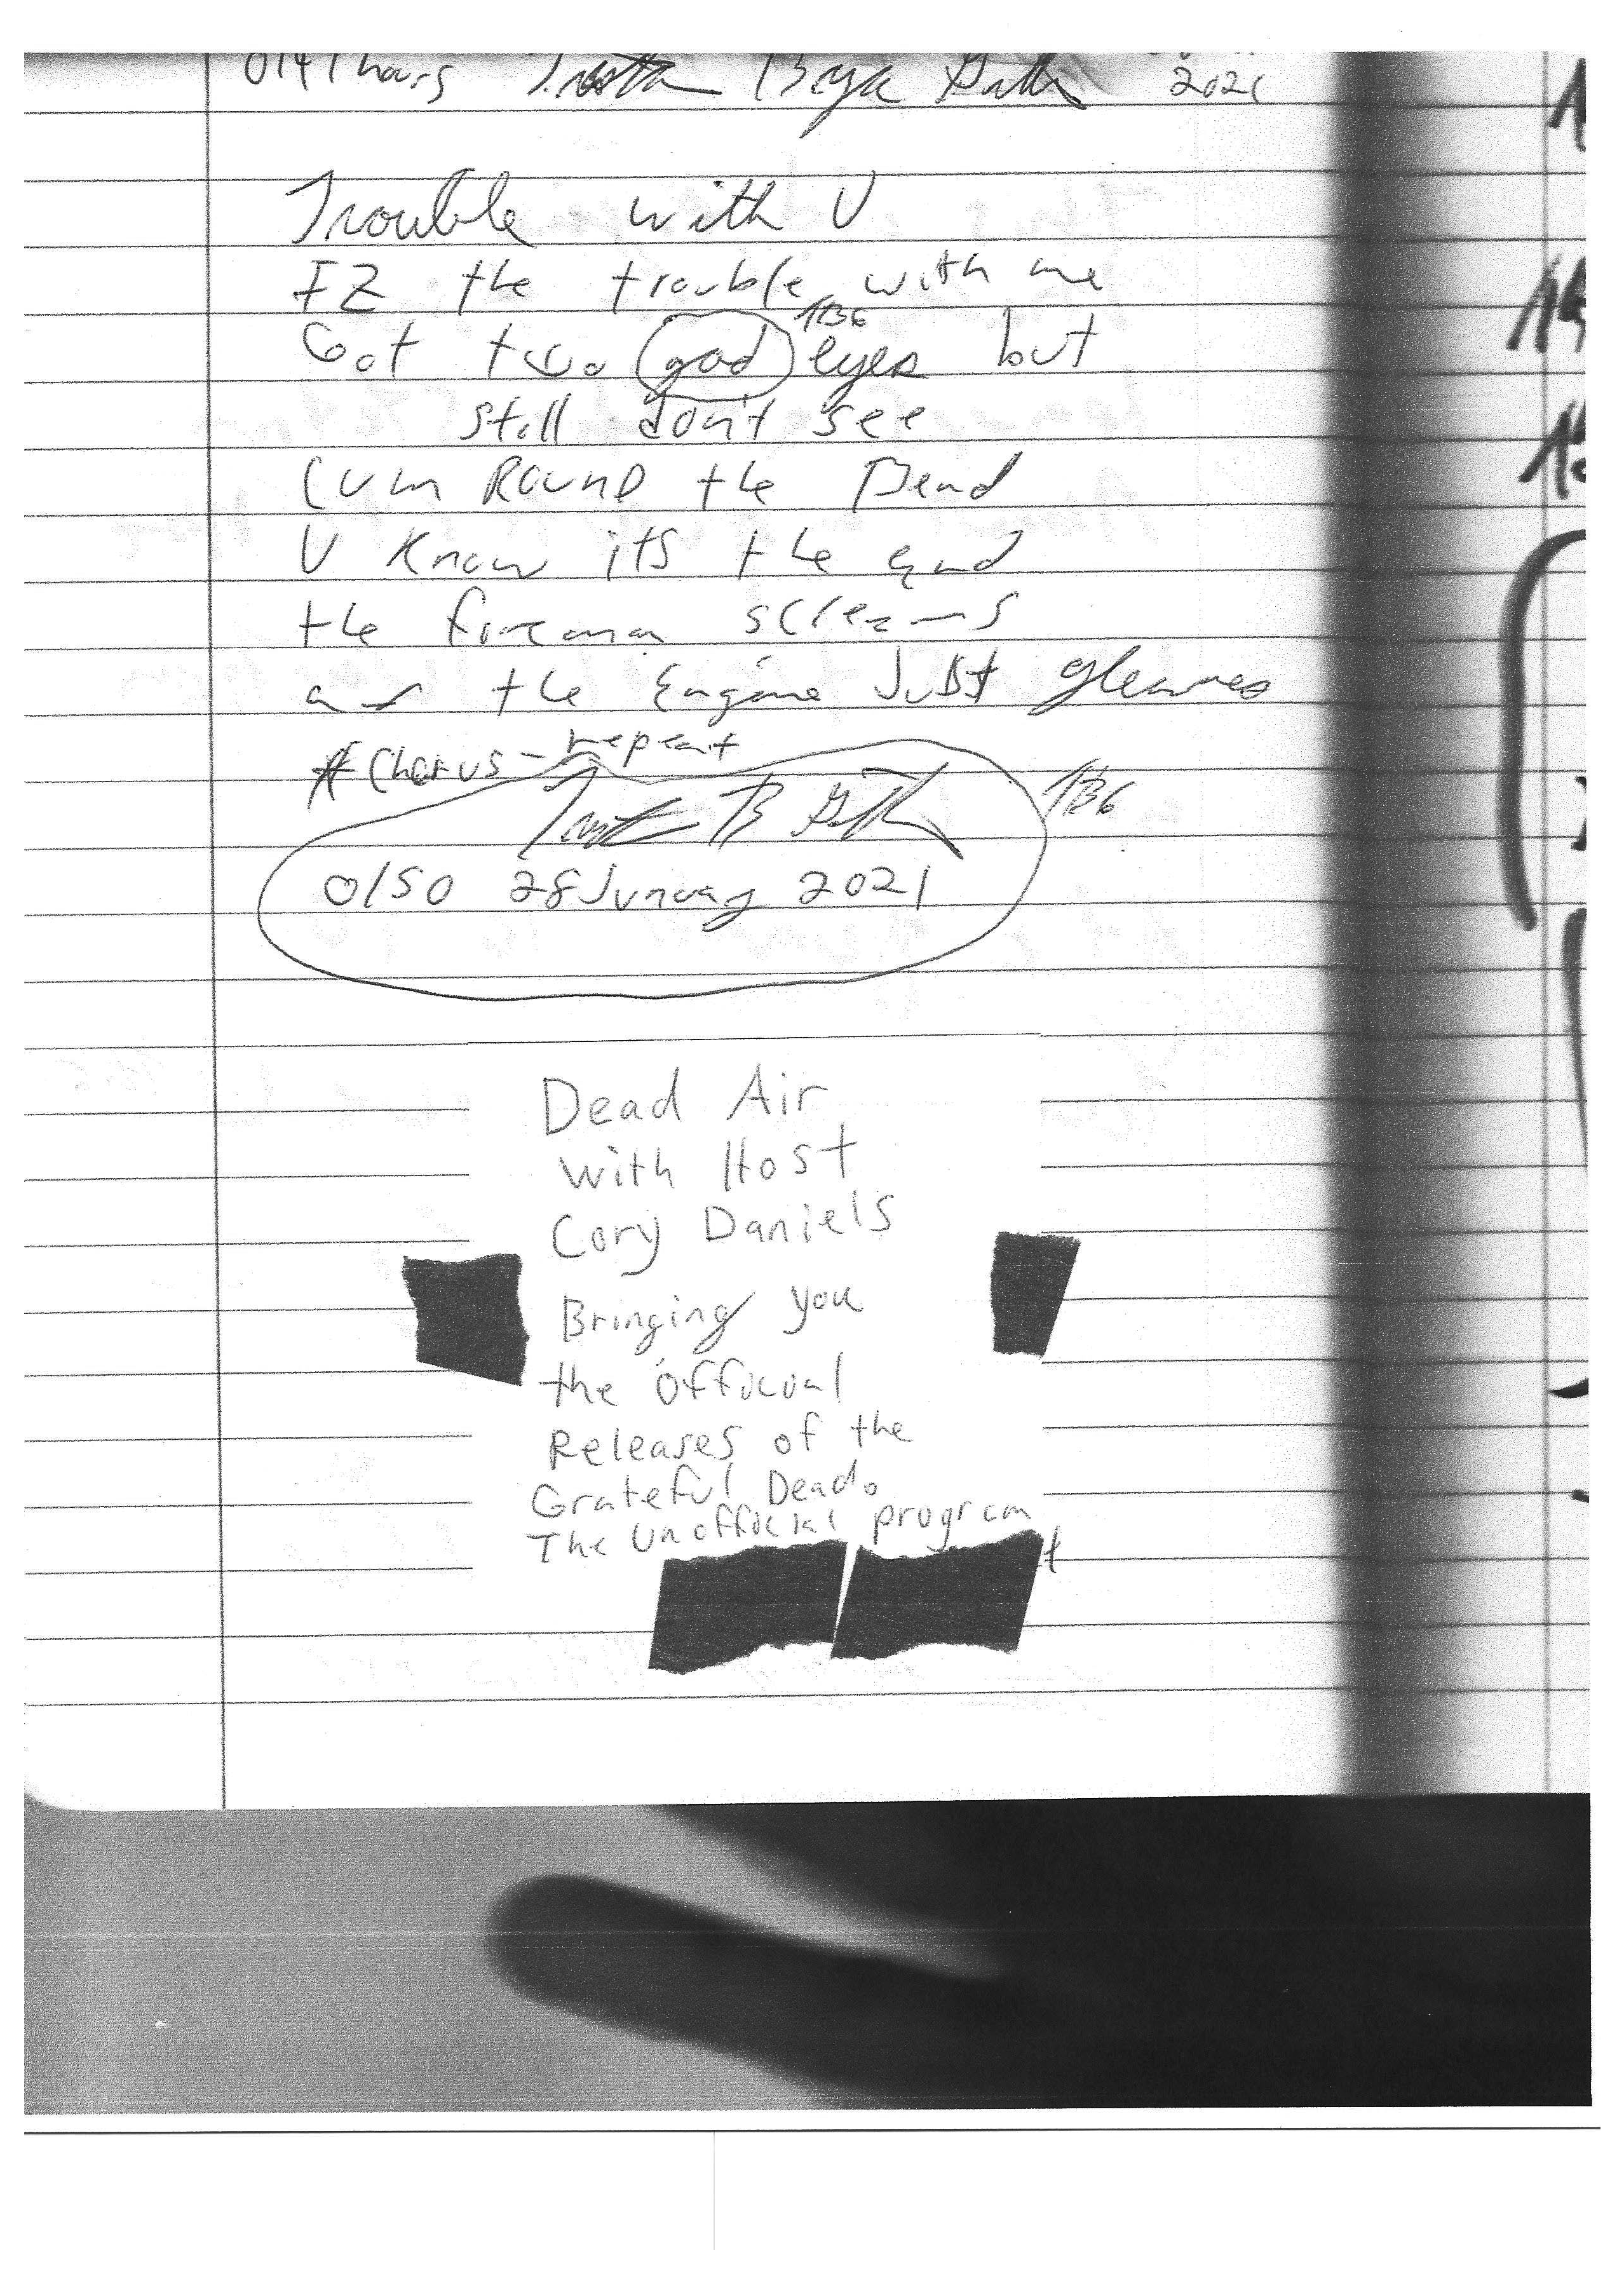 0141 hours 2021
Trouble with U
IZ the trouble with me
TBG
Got two good eyes but
still don't see
Cum ROUND the Bend
U Know itS the End
the fireman screams
and the Engine JuSt gleames
* Chorus - repeat
TBG
0150 28 Junuary 2021
Dead Air
with Host
Cory Daniels
Bringing you
the official
Releases of the
Grateful Dead.
The unofficial program